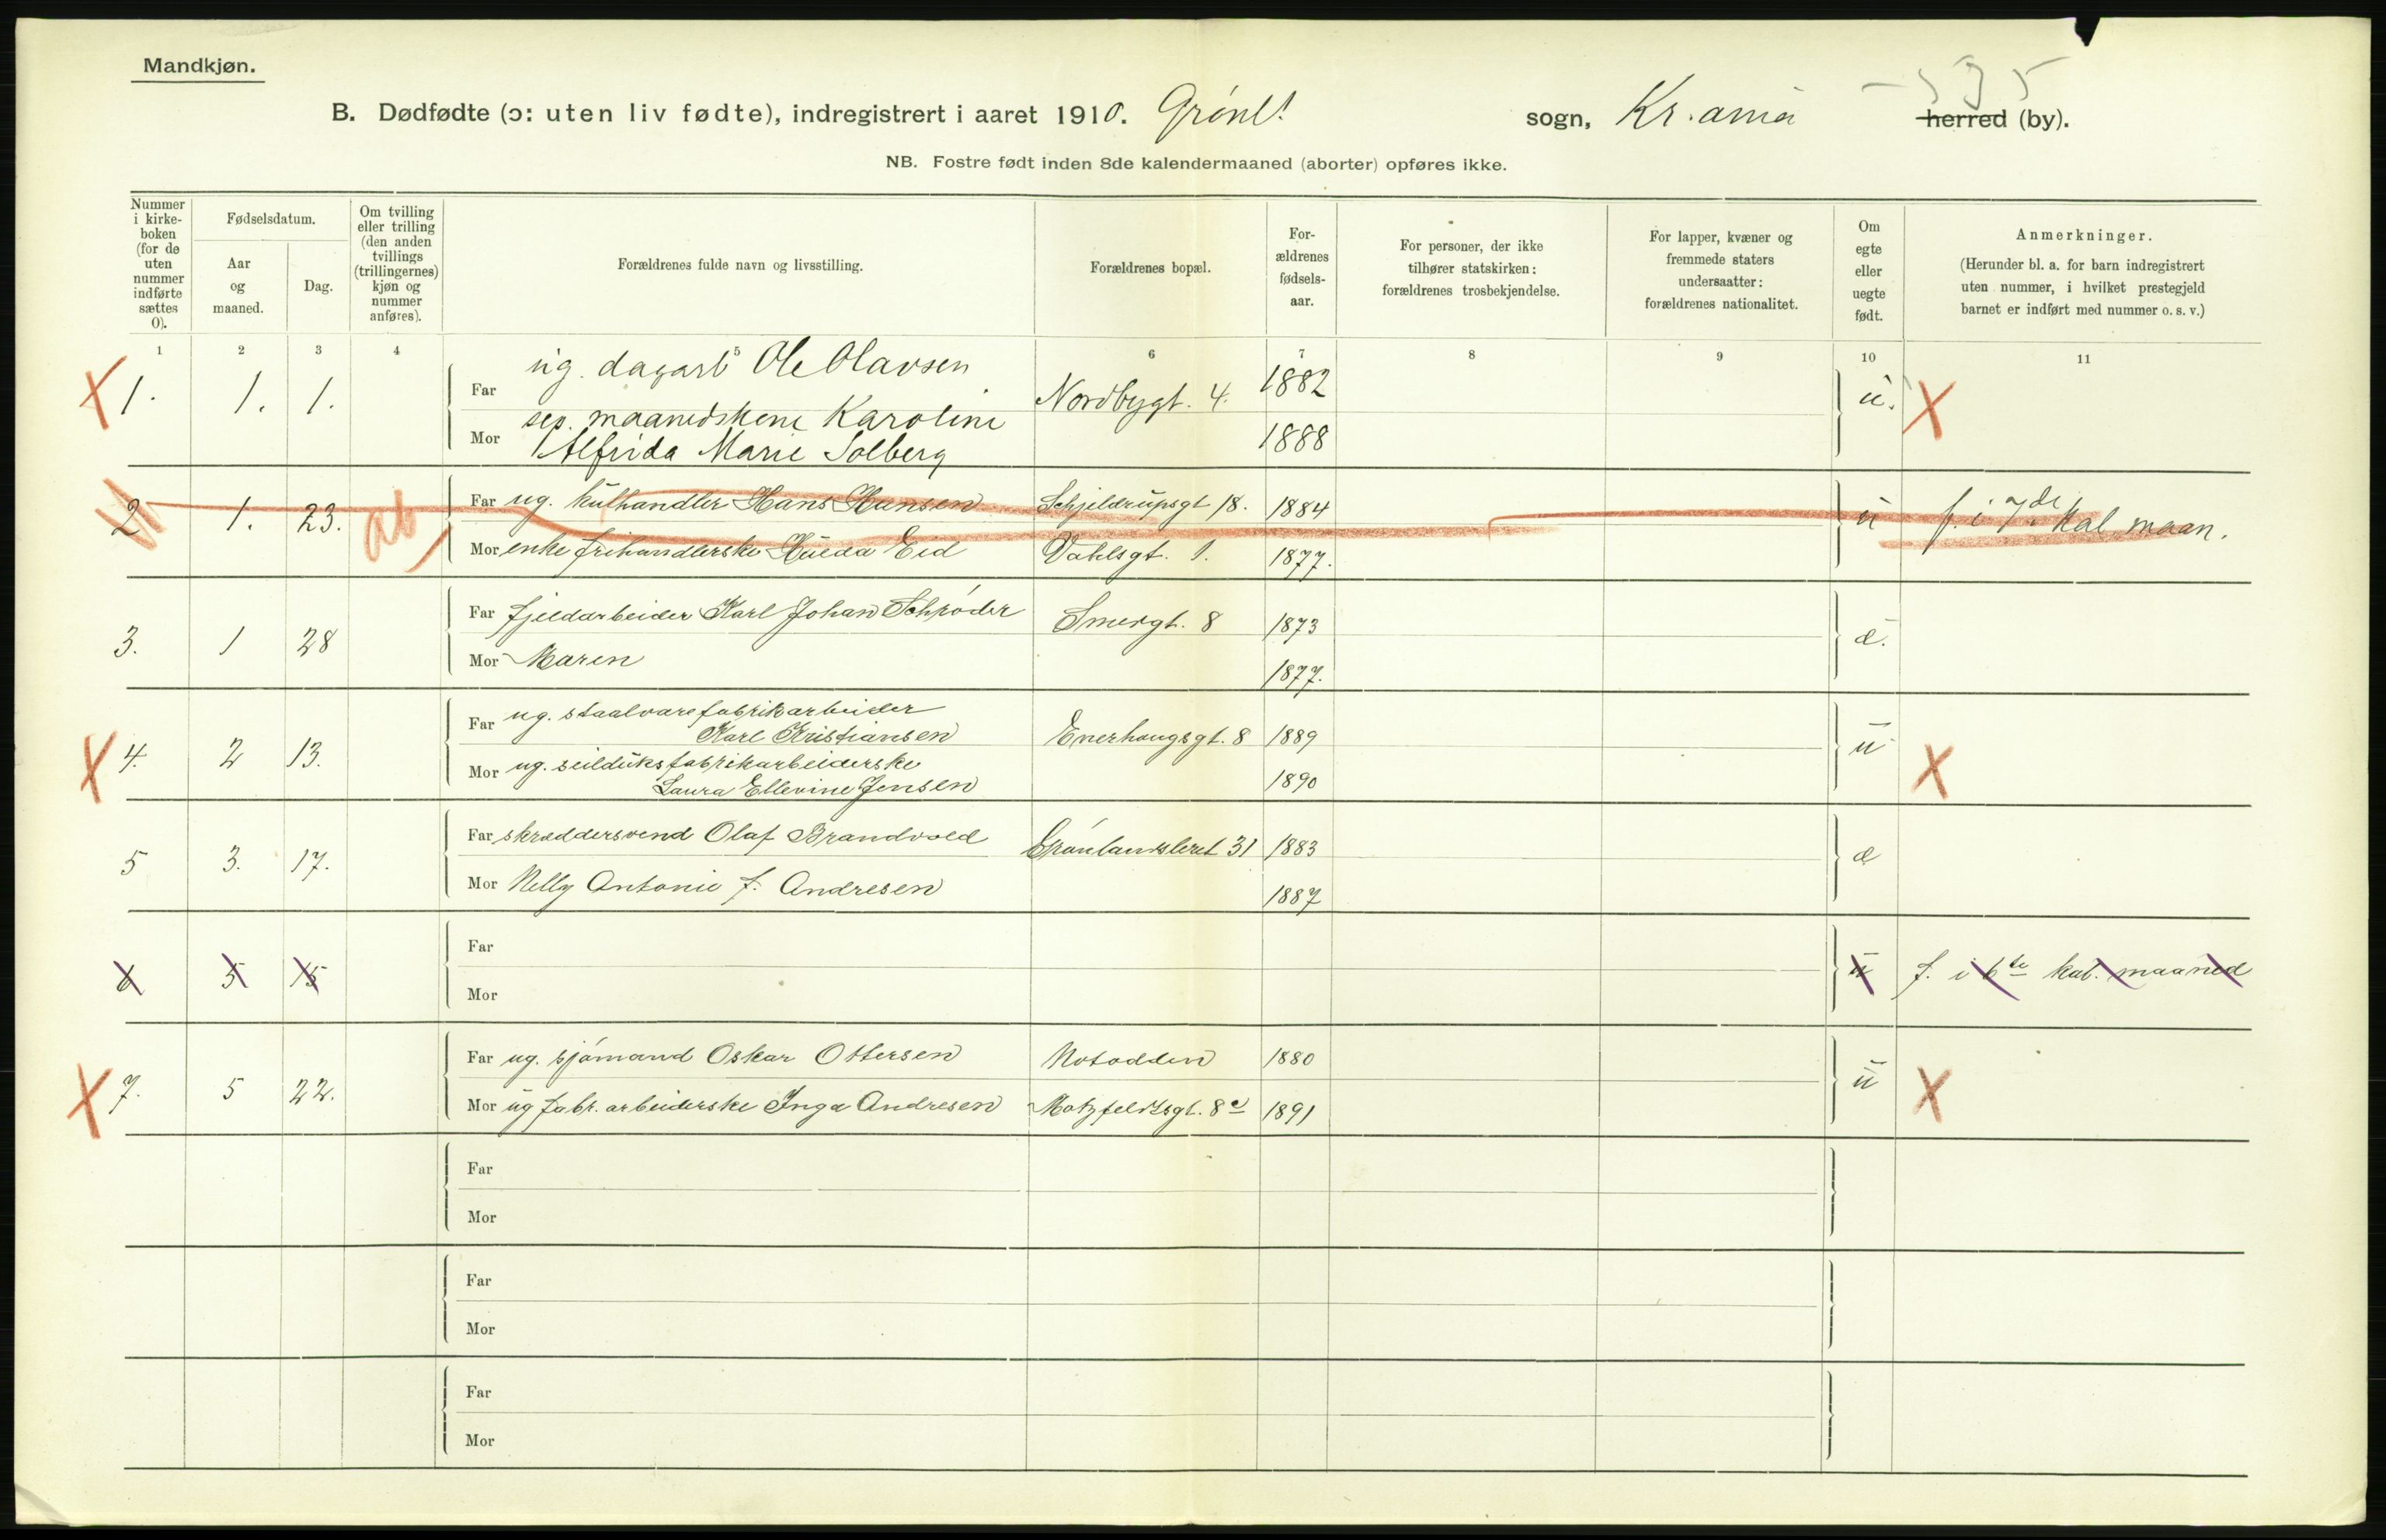 Mandkjøn.
B. Dødfødte (ɔ: uten liv fødte), indregistrert i aaret 1910. Grønl. sogn, Kr.ania herred (by).
NB. Fostre født inden 8de kalendermaaned (aborter) opføres ikke.
Nummer i kirke-boken (for de uten nummer indførte sættes 0).
Fødselsdatum.
Aar og maaned.
Dag.
Om tvilling eller trilling (den anden tvillings (trillingernes) kjøn og nummer anføres).
Forældrenes fulde navn og livsstilling.
Forældrenes bopæl.
For-ældrenes fødsels-aar.
For personer, der ikke tilhører statskirken: forældrenes trosbekjendelse.
For lapper, kvæner og fremmede staters undersaatter: forældrenes nationalitet.
Om egte eller uegte født.
Anmerkninger.
(Herunder bl. a. for barn indregistrert uten nummer, i hvilket prestegjeld barnet er indført med nummer o. s. v.)
1 2 3 4 5 6 7 8 9 10 11
X 1. 1. 1. Far ug. dagarb Ole Olavsen Nordbygt. 4. 1882 u. X
Mor sep. maanedskone Karoline
Alfrida Marie Solberg 1888
2 1. 23. ab Far ug. kulhandler Hans Hansen Schjeldrupsgt 18. 1884 u f. i 7de kal maan.
Mor enke frihandlerske Hulda Eid Vahlsgt. 1. 1877.
3. 1 28 Far fjeldarbeider Karl Johan Schrøder Smedgt. 8 1873 æ.
Mor Maren 1877.
X 4. 2 13. Far ug. staalvarefabrikarbeider
Karl Kristiansen Enerhaugsgt. 8 1889 u X
Mor ug. seilduksfabrikarbeiderske
Laura Ellevine Jensen 1890
5 3. 17. Far skræddersvend Olaf Brandvold Grønlandsleret 31 1883 æ
Mor Nelly Antonie f. Andresen 1887
6 5 15 Far u f. i 6te kal. maaned
Mor
X 7. 5 22. Far ug. sjømand Oskar Ottersen Notodden 1880 u X
Mor ug fabr. arbeiderske Inga Andresen Motzfeldtsgt. 8c 1891
Far
Mor
Far
Mor
Far
Mor